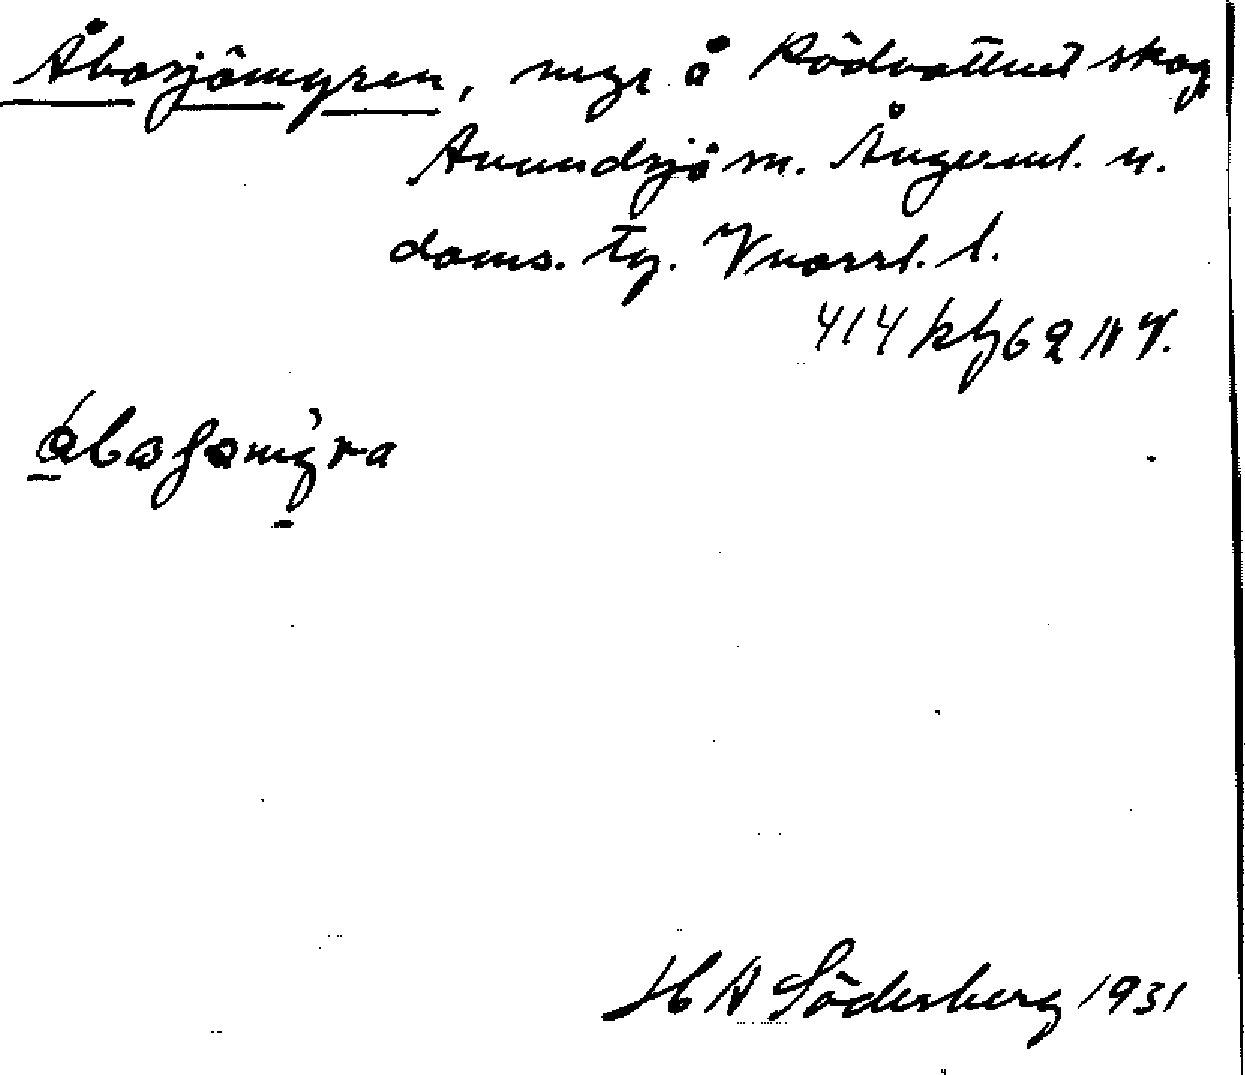 Åbosjömyren, myr å Rödvattnet skog
Anundsjö sn. Ångerml. n.
doms. tg. Vnorrl. l.
414 kbj 62 NV.
åbosjömyra
H A Söderberg 1931